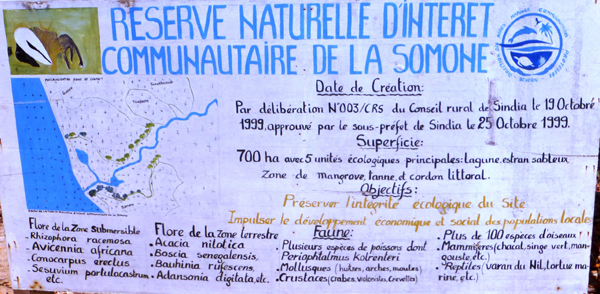 RESERVE NATURELLE D'INTERET
COMMUNAUTAIRE DE LA SOMONE
Date de Création:
Par délibération N°003/CRS du Conseil rural de Sindia le 19 Octobre
1999, approuvé par le sous-préfet de Sindia le 25 Octobre 1999.
Superficie:
700 ha avec 5 unités écologiques principales: lagune, estran sableux
Zone de mangrove, tanne, et cordon littoral.
Objectifs:
Préserver l'intégrité écologique du Site
Impulser le développement économique et social des populations locales
Flore de la Zone Submersible
Rhizophora racemosa
• Avicennia africana
• Conocarpus erectus
• Sesuvium portulacastrum
etc.
Flore de la Zone terrestre
• Acacia nilotica
• Boscia senegalensis,
• Bauhinia rufescens,
• Adansonia digitata, etc.
Faune:
• Plusieurs espèces de poissons dont
Periophtalmus Kolrenteri
• Mollusques (huitres, arches, moules)
• Crustacés (Crabes, Crevettes)
• Plus de 100 espèces d'oiseaux
• Mammifères (chacal, singe vert, man-
gouste, etc.)
• Reptiles (Varan du Nil, tortue ma-
rine, etc.)